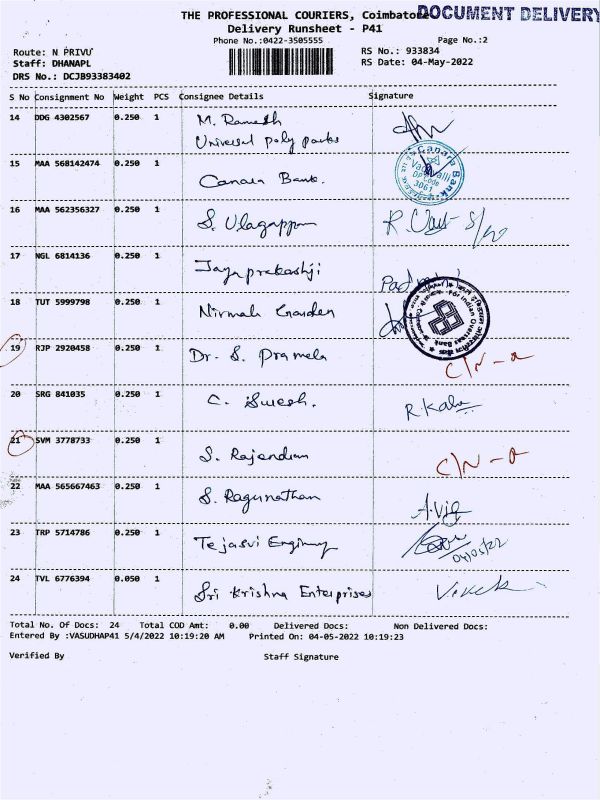 THE PROFESSIONAL COURIERS, Coimbatore
DOCUMENT DELIVERY
Delivery Runsheet - P41
Phone No.:0422-3505555
Page No.:2
Route: N PRIVU
RS No.: 933834
Staff: DHANAPL
RS Date: 04-May-2022
DRS No.: DCJB93383402
S No Consignment No Weight PCS Consignee Details Signature
14 DDG 4302567 0.250 1 M. Ramesh
Universal Poly packs
15 MAA 568142474 0.250 1 Canara Bank.
Canara Bank
Vadavalli
DP Code
3061
16 MAA 562356327 0.250 1 S. Ulagappan
17 NGL 6814136 0.250 1 Jayaprakashji
18 TUT 5999798 0.250 1 Nirmala Garden
For Indian Overseas Bank
19 RJP 2920458 0.250 1 Dr. S. Pramela C/N - a
20 SRG 841035 0.250 1 C. Suresh. R. Kala
21 SVM 3778733 0.250 1 S. Rajendran C/N - a
22 MAA 565667463 0.250 1 S. Ragunathan
23 TRP 5714786 0.250 1 Tejasvi 04/05/22
24 TVL 6776394 0.050 1 Sri Krishna Enterprises Vivek
Total No. Of Docs: 24 Total COD Amt: 0.00 Delivered Docs: Non Delivered Docs:
Entered By :VASUDHAP41 5/4/2022 10:19:20 AM Printed On: 04-05-2022 10:19:23
Verified By Staff Signature